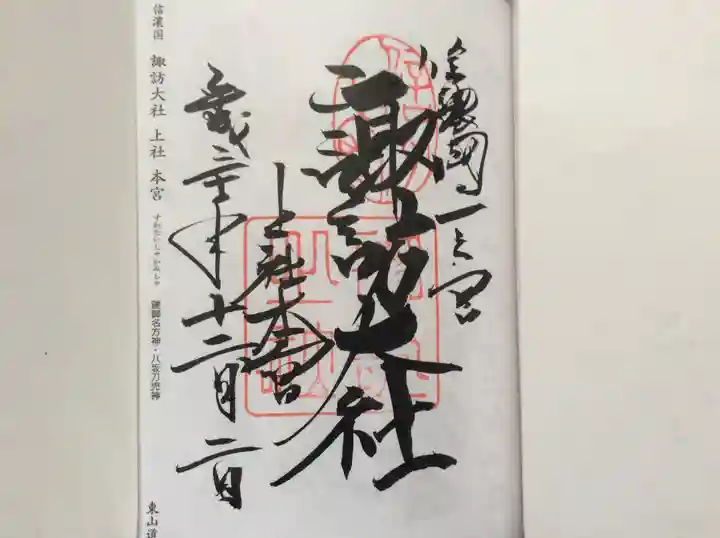 信濃國一之宮
諏訪大社
上社本宮
平成三十年十二月二日
信濃国 諏訪大社 上社 本宮 すわたいしゃかみしゃ 建御名方神・八坂刀売神 東山道